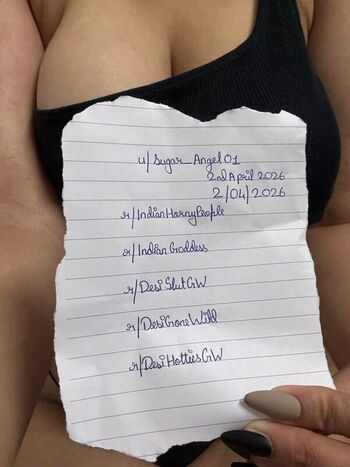 u/Sugar_Angel01
2nd April 2026
2/04/2026
r/IndianHornyPeople
r/IndianGoddess
r/DesiSlutGW
r/DesiGoneWild
r/DesiHottiesGW